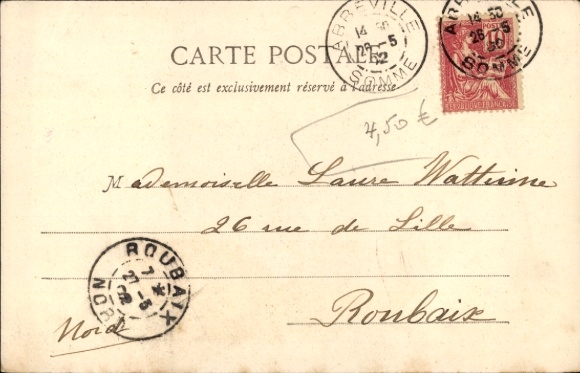 CARTE POSTALE
Ce côté est exclusivement réservé à l'adresse
ABBEVILLE
14 30
26 -5
02
SOMME
14 30
26 5
SOMME
10
RÉPUBLIQUE FRANÇAISE
4,50 €
Mademoiselle Laure Wattinne
26 rue de Lille
Roubaix
Nord
ROUBAIX
7
27 -5
02
NORD